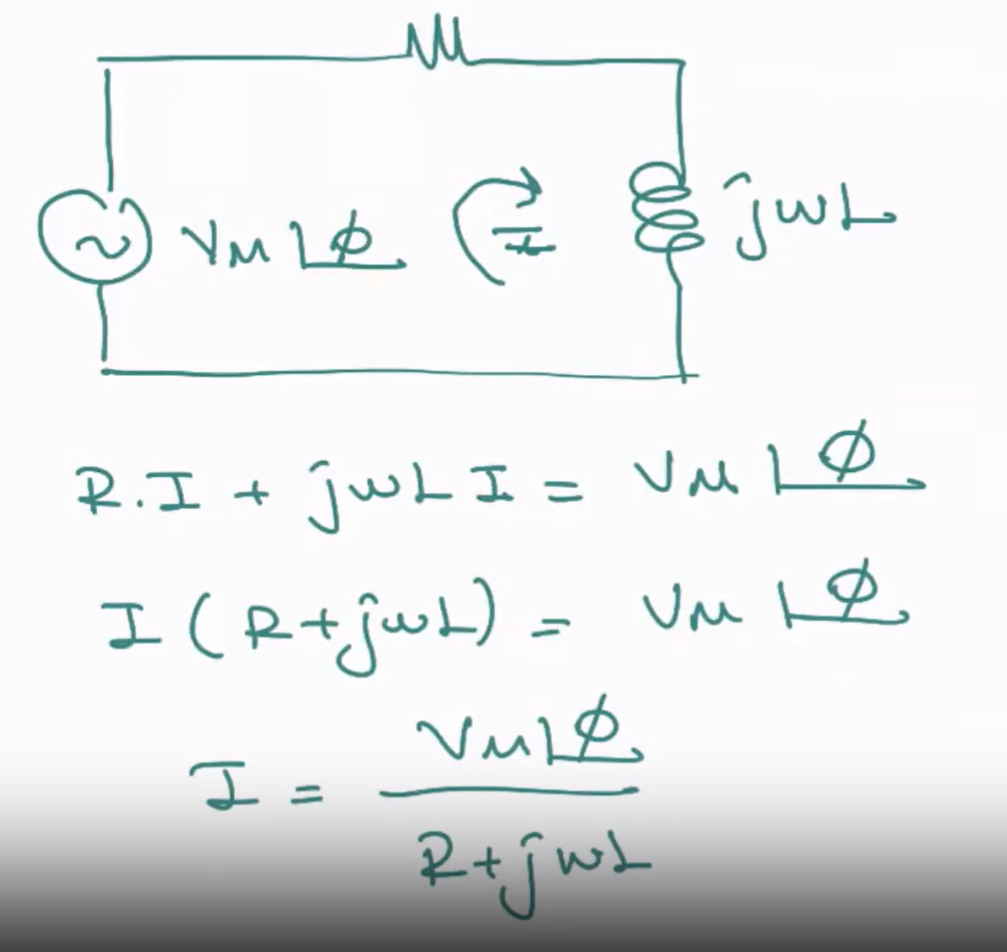 VM∠φ
I
jωL
R.I + jωL I = VM ∠φ
I (R+jωL) = VM ∠φ
I = VM∠φ / R+jωL